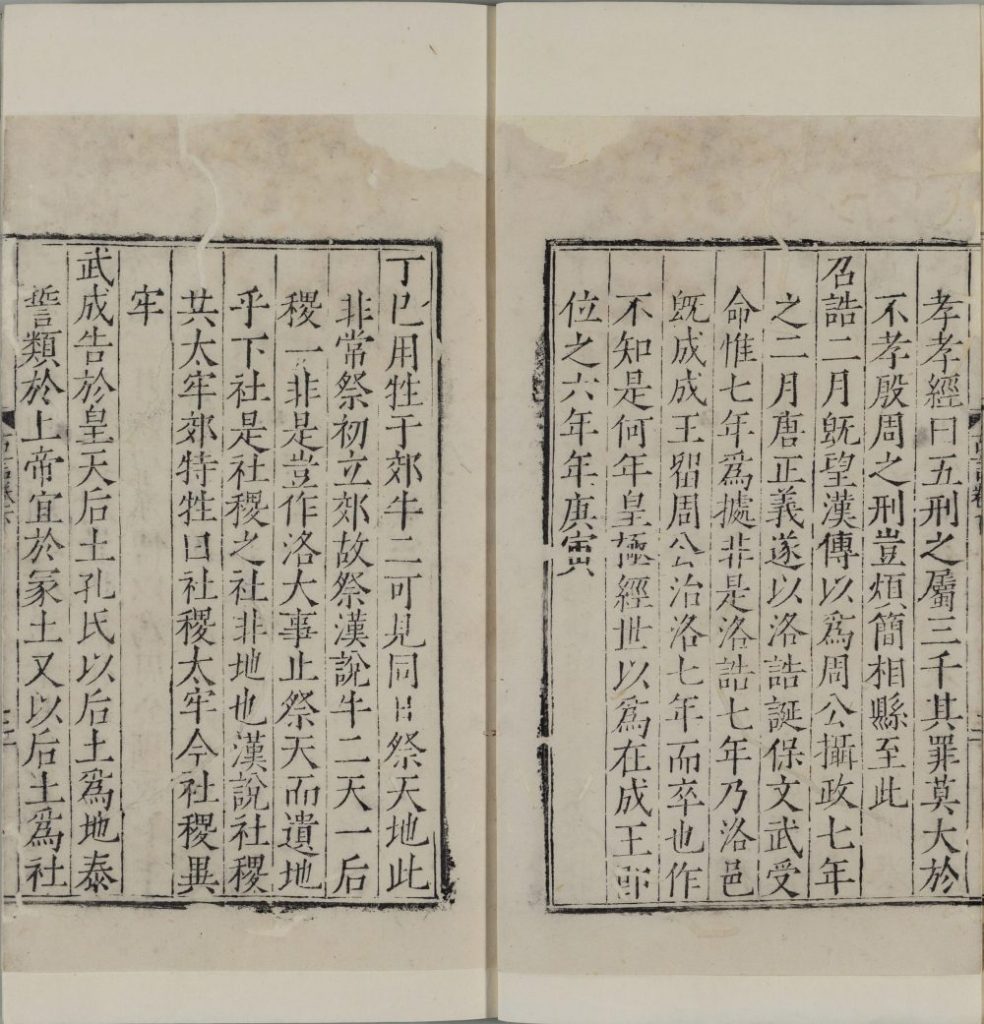 孝孝經曰五刑之屬三千其罪莫大於
不孝殷周之刑豈煩簡相縣至此
召誥二月旣望漢傳以爲周公攝政七年
之二月唐正義遂以洛誥誕保文武受
命惟七年爲據非是洛誥七年乃洛邑
旣成成王留周公治洛七年而卒也作
不知是何年皇極經世以爲在成王即
位之六年年庚寅
丁巳用牲于郊牛二可見同日祭天地此
非常祭初立郊故祭漢說牛二天一后
稷一非是豈作洛大事止祭天而遺地
乎下社是社稷之社非地也漢說社稷
共太牢郊特牲曰社稷太牢今社稷異
牢
武成告於皇天后土孔氏以后土爲地泰
誓類於上帝宜於冢土又以后土爲社